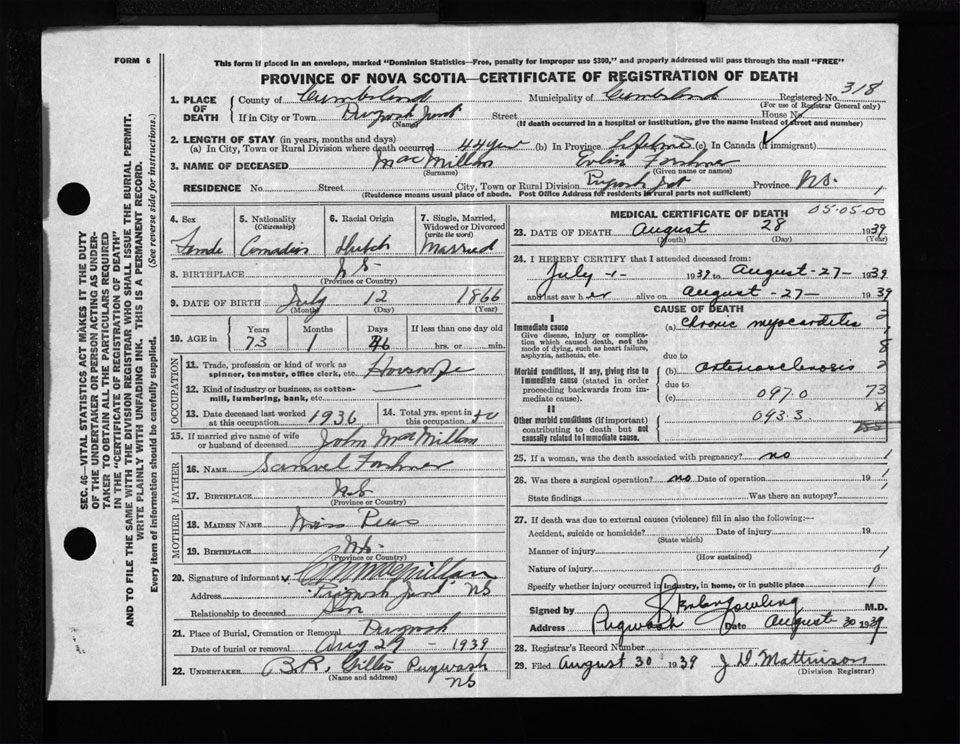 FORM 6
This form if placed in an envelope, marked "Dominion Statistics—Free, penalty for improper use $300," and properly addressed will pass through the mail "FREE"
PROVINCE OF NOVA SCOTIA—CERTIFICATE OF REGISTRATION OF DEATH
318
1. PLACE OF DEATH { County of Cumberland Municipality of Cumberland Registered No.
(For use of Registrar General only)
If in City or Town Pugwash Junct Street House No.
(Name) (If death occurred in a hospital or institution, give the name instead of street and number)
2. LENGTH OF STAY (in years, months and days)
(a) In City, Town or Rural Division where death occurred 44 years (b) In Province Lifetime (c) In Canada (if immigrant)
3. NAME OF DECEASED MacMillan Forshner
(Surname) (Given name or names)
RESIDENCE No. Street City, Town or Rural Division Pugwash Jct Province N.S. 1
(Residence means usual place of abode. Post Office Address for residents in rural parts not sufficient)
SEC. 46—VITAL STATISTICS ACT MAKES IT THE DUTY
OF THE UNDERTAKER OR PERSON ACTING AS UNDER-
TAKER TO OBTAIN ALL THE PARTICULARS REQUIRED
IN THE "CERTIFICATE OF REGISTRATION OF DEATH"
AND TO FILE THE SAME WITH THE DIVISION REGISTRAR WHO SHALL ISSUE THE BURIAL PERMIT.
WRITE PLAINLY WITH UNFADING INK. THIS IS A PERMANENT RECORD.
Every item of information should be carefully supplied. (See reverse side for instructions.)
4. Sex 5. Nationality 6. Racial Origin 7. Single, Married,
(Citizenship) Widowed or Divorced
(write the word)
Female Canadian Dutch Married
8. BIRTHPLACE N S
(Province or Country)
9. DATE OF BIRTH July 12 1866
(Month) (Day) (Year)
10. AGE in { Years Months Days If less than one day old
73 1 16 hrs. or min.
OCCUPATION
11. Trade, profession or kind of work as
spinner, teamster, office clerk, etc. Housewife
12. Kind of industry or business, as cotton-
mill, lumbering, bank, etc.
13. Date deceased last worked at this occupation 1936 14. Total yrs. spent in this occupation 40
15. If married give name of wife or husband of deceased John MacMillan
FATHER
16. NAME Samuel Forshner
17. BIRTHPLACE N S
(Province or Country)
MOTHER
18. MAIDEN NAME Miss
19. BIRTHPLACE N.S.
(Province or Country)
20. Signature of informant MacMillan
Address Pugwash Junct NS
Relationship to deceased Son
21. Place of Burial, Cremation or Removal Pugwash
Date of burial or removal Aug 29 1939
22. UNDERTAKER B.R. Gillis Pugwash
(Name and address) NS
MEDICAL CERTIFICATE OF DEATH 05-05-00
23. DATE OF DEATH August 28 1939
(Month) (Day) (Year)
24. I HEREBY CERTIFY that I attended deceased from:
July -1- 1939 to August-27- 1939
and last saw her alive on August-27- 1939
CAUSE OF DEATH
I
Immediate cause (a) Chronic myocarditis
Give disease, injury or complica-
tion which caused death, not the
mode of dying, such as heart failure,
asphyxia, asthenia, etc.
due to
Morbid conditions, if any, giving rise to
immediate cause (stated in order
proceeding backwards from im-
mediate cause).
(b) arteriosclerosis
due to
(c) 097.0 73
II
Other morbid conditions (if important)
contributing to death but not
causally related to immediate cause.
093.3
25. If a woman, was the death associated with pregnancy? no 1
26. Was there a surgical operation? no Date of operation 19 1
State findings Was there an autopsy?
27. If death was due to external causes (violence) fill in also the following:—
Accident, suicide or homicide? Date of injury 19
(State which)
Manner of injury 1
(How sustained)
Nature of injury 0
Specify whether injury occurred in industry, in home, or in public place 1
Signed by M.D.
Address Pugwash Date August 30 1939
28. Registrar's Record Number
29. Filed August 30 1939 J D. Mattinson
(Division Registrar)